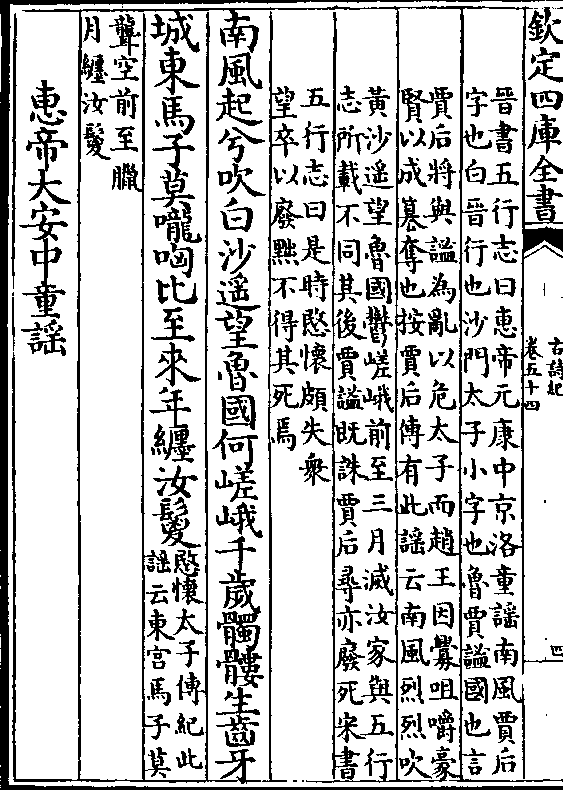 欽定四庫全書
古詩紀
卷五十四
四
晉書五行志曰惠帝元康中京洛童謡南風賈后
字也白晉行也沙門太子小字也魯賈謐國也言
賈后將與謐為亂以危太子而趙王因釁咀嚼豪
賢以成篡奪也按賈后傳有此謡云南風烈烈吹
黄沙遥望魯國鬱嵯峨前至三月滅汝家與五行
志所載不同其後賈謐既誅賈后尋亦廢死宋書
五行志曰是時愍懷頗失衆
望卒以廢黜不得其死焉
南風起兮吹白沙遥望魯國何嵯峨千歲髑髏生齒牙
城東馬子莫嚨哅比至來年纒汝鬉
愍懷太子傳紀此
謡云東宫馬子莫
聾空前至臘
月纒汝鬉
惠帝大安中童謡